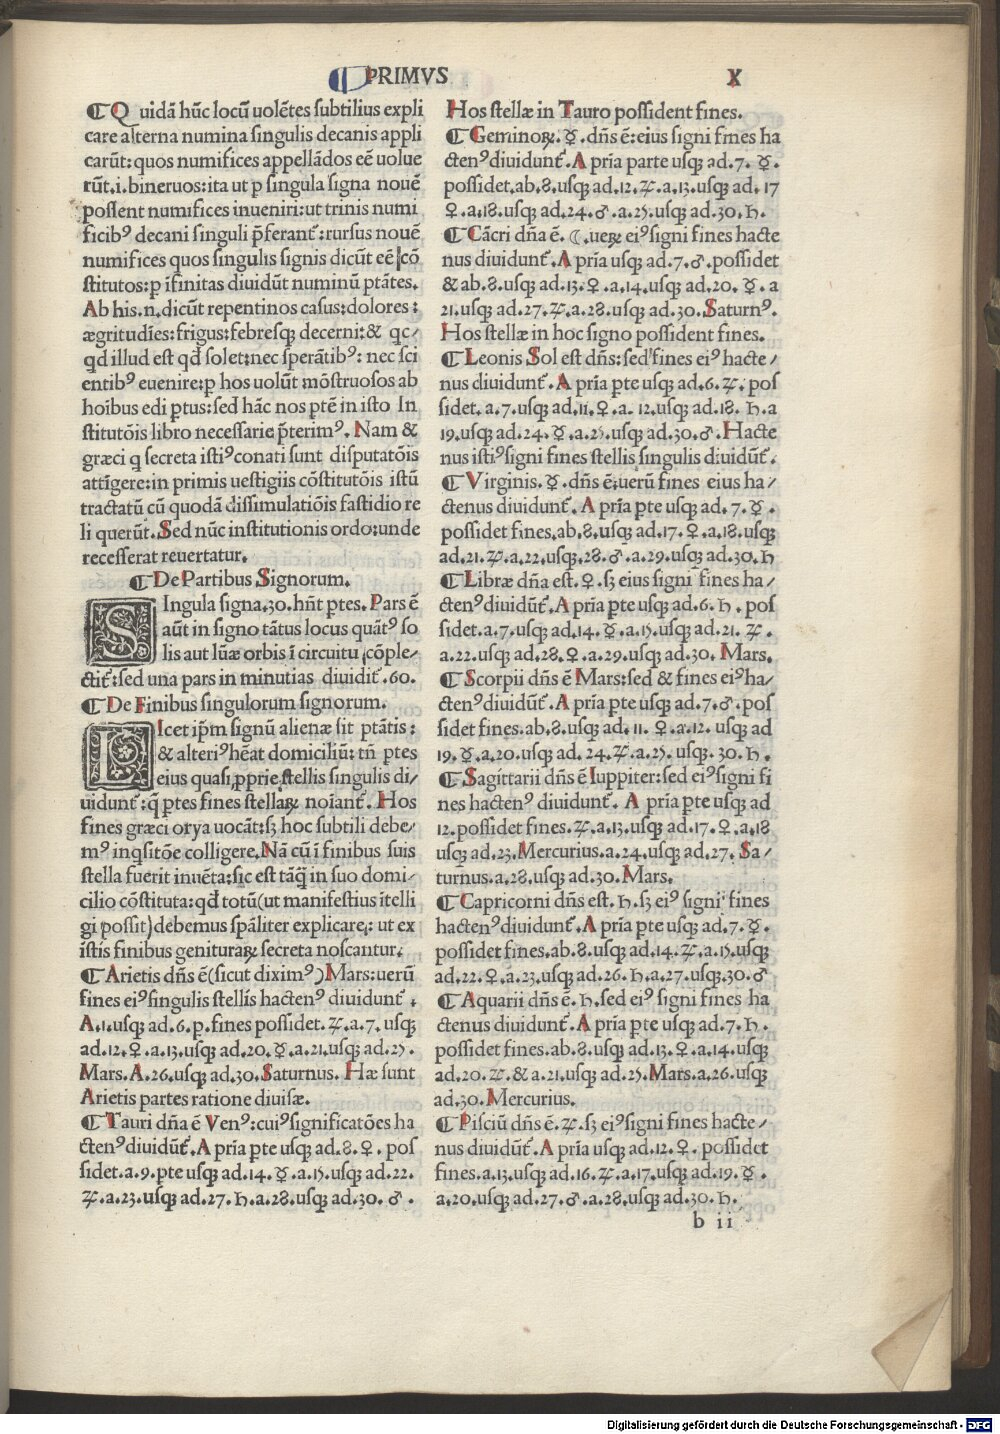 PRIMVS
X
¶ Quidā hūc locū uolētes subtilius expli
care alterna numina singulis decanis appli
carūt: quos numifices appellādos eē uolue
rūt.i.bineruos:ita ut p singula signa nouē
possent numifices inueniri:ut trinis numi
ficibꝰ decani singuli p̄ferant᷑: rursus nouē
numifices quos singulis signis dicūt eē cō
stitutos:p īfinitas diuidūt numinū ptātes.
Ab his.n.dicūt repentinos casus:dolores:
ægritudies:frigus:febresqꝫ decerni:& qc⸗
qd illud est qd solet:nec sperātibꝰ: nec sci
entibꝰ euenire:p hos uolūt mōstruosos ab
hoībus edi ptus:sed hāc nos ptē in isto In
stitutōis libro necessarie p̄terimꝰ. Nam &
græci q secreta istiꝰ conati sunt disputatōis
attīgere:in primis uestigiis cōstitutōis istū
tractatū cū quodā dissimulatiōis fastidio re
li querūt. Sed nūc institutionis ordo:unde
recesserat reuertatur.
¶ De Partibus Signorum.
SIngula signa.30.hn̄t ptes. Pars ē
aūt in signo tātus locus quātꝰ so
lis aut lūæ orbis ī circuitu cōple⸗
ctit᷑:sed una pars in minutias diuidit᷑.60.
¶ De Finibus singulorum signorum.
LIcet ip̄m signū alienæ sit ptātis:
& alteriꝰ hēat domiciliū: tn̄ ptes
eius quasi ꝓprie stellis singulis di⸗
uidunt᷑: q̄ ptes fines stellaꝝ noīant᷑. Hos
fines græci orya uocāt:sꝫ hoc subtili debe⸗
mꝰ inqsitōe colligere. Nā cū ī finibus suis
stella fuerit inuēta:sic est tāq̄ in suo domi⸗
cilio cōstituta: qd totū(ut manifestius ītelli
gi possit)debemus spāliter explicare: ut ex
istis finibus genituraꝝ secreta noscantur.
¶ Arietis dn̄s ē(sicut diximꝰ)Mars:uerū
fines eiꝰ singulis stellis hactenꝰ diuidunt᷑.
A.1.usqꝫ ad.6.p.fines possidet.♃.a.7.usqꝫ
ad.12.♀.a.13.usqꝫ ad.20.☿.a.21.usqꝫ ad.25.
Mars. A.26.usqꝫ ad.30.Saturnus. Hæ sunt
Arietis partes ratione diuisæ.
¶ Tauri dn̄a ē Venꝰ:cuiꝰ significatōes ha
ctenꝰ diuidūt᷑. A pria pte usqꝫ ad.8.♀.pos
sidet.a.9.pte usqꝫ ad.14.☿.a.15.usqꝫ ad.22.
♃.a.23.usqꝫ ad.27.♄.a.28.usqꝫ ad.30.♂.
Hos stellæ in Tauro possident fines.
¶ Geminoꝝ.☿.dn̄s ē:eius signi fines ha
ctenꝰ diuidunt᷑. A pria parte usqꝫ ad.7.☿.
possidet.ab.8.usqꝫ ad.12.♃.a.13.usqꝫ ad.17
♀.a.18.usqꝫ ad.24.♂.a.25.usqꝫ ad.30.♄.
¶ Cācri dn̄a ē.☾.ueꝝ eiꝰ signi fines hacte
nus diuidunt᷑. A pria usqꝫ ad.7.♂.possidet
& ab.8.usqꝫ ad.13.♀.a.14.usqꝫ ad.20.☿.a
21.usqꝫ ad.27.♃.a.28.usqꝫ ad.30.Saturnꝰ.
Hos stellæ in hoc signo possident fines.
¶ Leonis Sol est dn̄s:sed fines eiꝰ hacte⸗
nus diuidunt᷑. A pria pte usqꝫ ad.6.♃.pos
sidet.a.7.usqꝫ ad.11.♀.a.12.usqꝫ ad.18.♄.a
19.usqꝫ ad.24.☿.a.25.usqꝫ ad.30.♂. Hacte
nus istiꝰ signi fines stellis singulis diuidūt᷑.
¶ Virginis.☿.dn̄s ē:uerū fines eius ha⸗
ctenus diuidunt᷑. A pria pte usqꝫ ad.7.☿.
possidet fines.ab.8.usqꝫ ad.17.♀.a.18.usqꝫ
ad.21.♃.a.22.usqꝫ.28.♂.a.29.usqꝫ ad.30.♄
¶ Libræ dn̄a est.♀.sꝫ eius signi fines ha⸗
ctenꝰ diuidūt᷑. A pria pte usqꝫ ad.6.♄.pos
sidet.a.7.usqꝫ ad.14.☿.a.15.usqꝫ ad.21.♃.
a.22.usqꝫ ad.28.♀.a.29.usqꝫ ad.30.Mars.
¶ Scorpii dn̄s ē Mars:sed & fines eiꝰ ha⸗
ctenꝰ diuidunt᷑. A pria pte usqꝫ ad.7.♂.pos
sidet fines.ab.8.usqꝫ ad.11.♀.a.12.usqꝫ ad
19.☿.a.20.usqꝫ ad.24.♃.a.25.usqꝫ.30.♄.
¶ Sagittarii dn̄s ē Iuppiter:sed eiꝰ signi fi
nes hactenꝰ diuidunt᷑. A pria pte usqꝫ ad
12.possidet fines.♃.a.13.usqꝫ ad.17.♀.a.18
usqꝫ ad.23.Mercurius.a.24.usqꝫ ad.27.Sa⸗
turnus.a.28.usqꝫ ad.30.Mars.
¶ Capricorni dn̄s est.♄.sꝫ eiꝰ signi fines
hactenꝰ diuidunt᷑. A pria pte usqꝫ ad.7.☿.
possidet fines.ab.8.usqꝫ ad.14.♃.a.15.usqꝫ
ad.22.♀.a.23.usqꝫ ad.26.♄.a.27.usqꝫ.30.♂
¶ Aquarii dn̄s ē.♄.sed eiꝰ signi fines ha
ctenus diuidunt᷑. A pria pte usqꝫ ad.7.♄.
possidet fines.ab.8.usqꝫ ad.13.♀.a.14.usqꝫ
ad.20.♃.& a.21.usqꝫ ad.25.Mars.a.26.usqꝫ
ad.30.Mercurius.
¶ Pisciū dn̄s ē.♃.sꝫ eiꝰ signi fines hacte⸗
nus diuidūt᷑. A pria pte usqꝫ ad.12.♀.possidet
fines.a.13.usqꝫ ad.16.♃.a.17.usqꝫ ad.19.☿.
a.20.usqꝫ ad.27.♂.a.28.usqꝫ ad.30.♄.
b ii
Digitalisierung gefördert durch die Deutsche Forschungsgemeinschaft - DFG